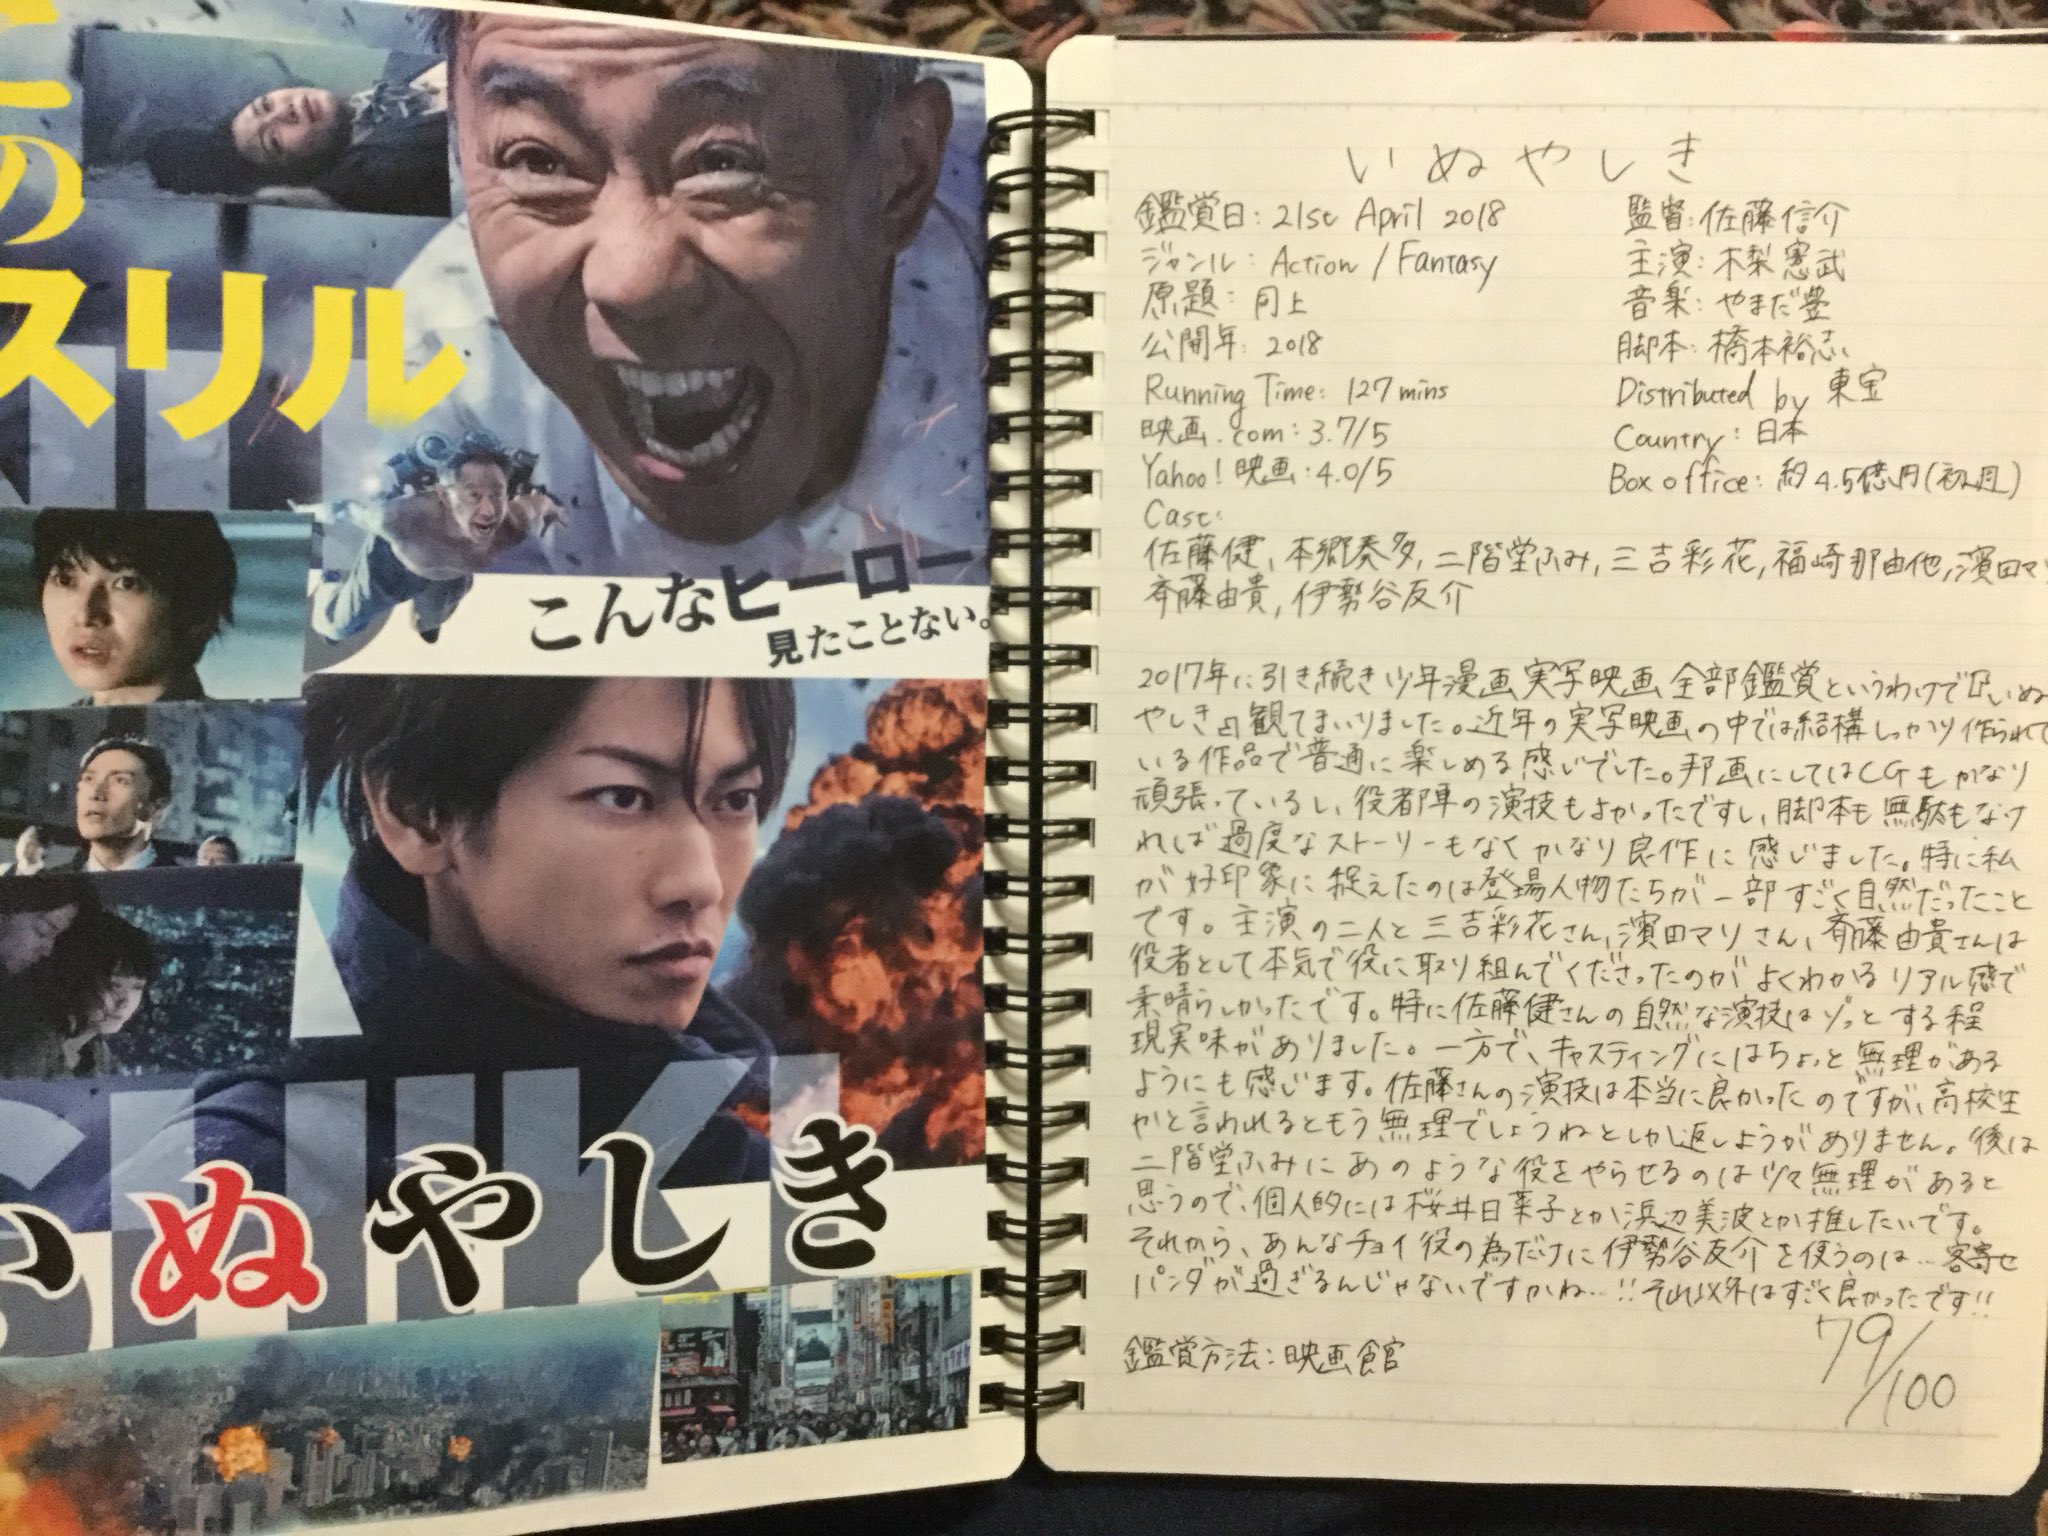 の
スリル
こんなヒーロー
見たことない。
いぬやしき
いぬやしき
鑑賞日: 21st April 2018
監督: 佐藤信介
ジャンル: Action / Fantasy
主演: 木梨憲武
原題: 同上
音楽: やまだ豊
公開年: 2018
脚本: 橋本裕志
Running Time: 127 mins
Distributed by 東宝
映画.com: 3.7/5
Country: 日本
Yahoo! 映画: 4.0/5
Box office: 約4.5億円(初週)
Cast:
佐藤健, 本郷奏多, 二階堂ふみ, 三吉彩花, 福崎那由他, 濱田マ
斉藤由貴, 伊勢谷友介
2017年に引き続き少年漫画実写映画全部鑑賞というわけで『いぬ
やしき』観てまいりました。近年の実写映画の中では結構しっかり作られて
いる作品で普通に楽しめる感じでした。邦画にしてはCGもかなり
頑張っているし、役者陣の演技もよかったですし、脚本も無駄もなけ
れば過度なストーリーもなくかなり良作に感じました。特に私
が好印象に捉えたのは登場人物たちが一部すごく自然だったこと
です。主演の二人と三吉彩花さん、濱田マリさん、斉藤由貴さんは
役者として本気で役に取り組んでくださったのがよくわかるリアル感で
素晴らしかったです。特に佐藤健さんの自然な演技はゾっとする程
現実味がありました。一方で、キャスティングにはちょっと無理がある
ようにも感じます。佐藤さんの演技は本当に良かったのですが、高校生
かと言われるともう無理でしょうねとしか返しようがありません。後は
二階堂ふみにあのような役をやらせるのは少々無理があると
思うので、個人的には桜井日菜子とか浜辺美波とか推したいです。
それから、あんなチョイ役の為だけに伊勢谷友介を使うのは…客寄せ
パンダが過ぎるんじゃないですかね…!! それ以外はすごく良かったです!!
79/100
鑑賞方法: 映画館